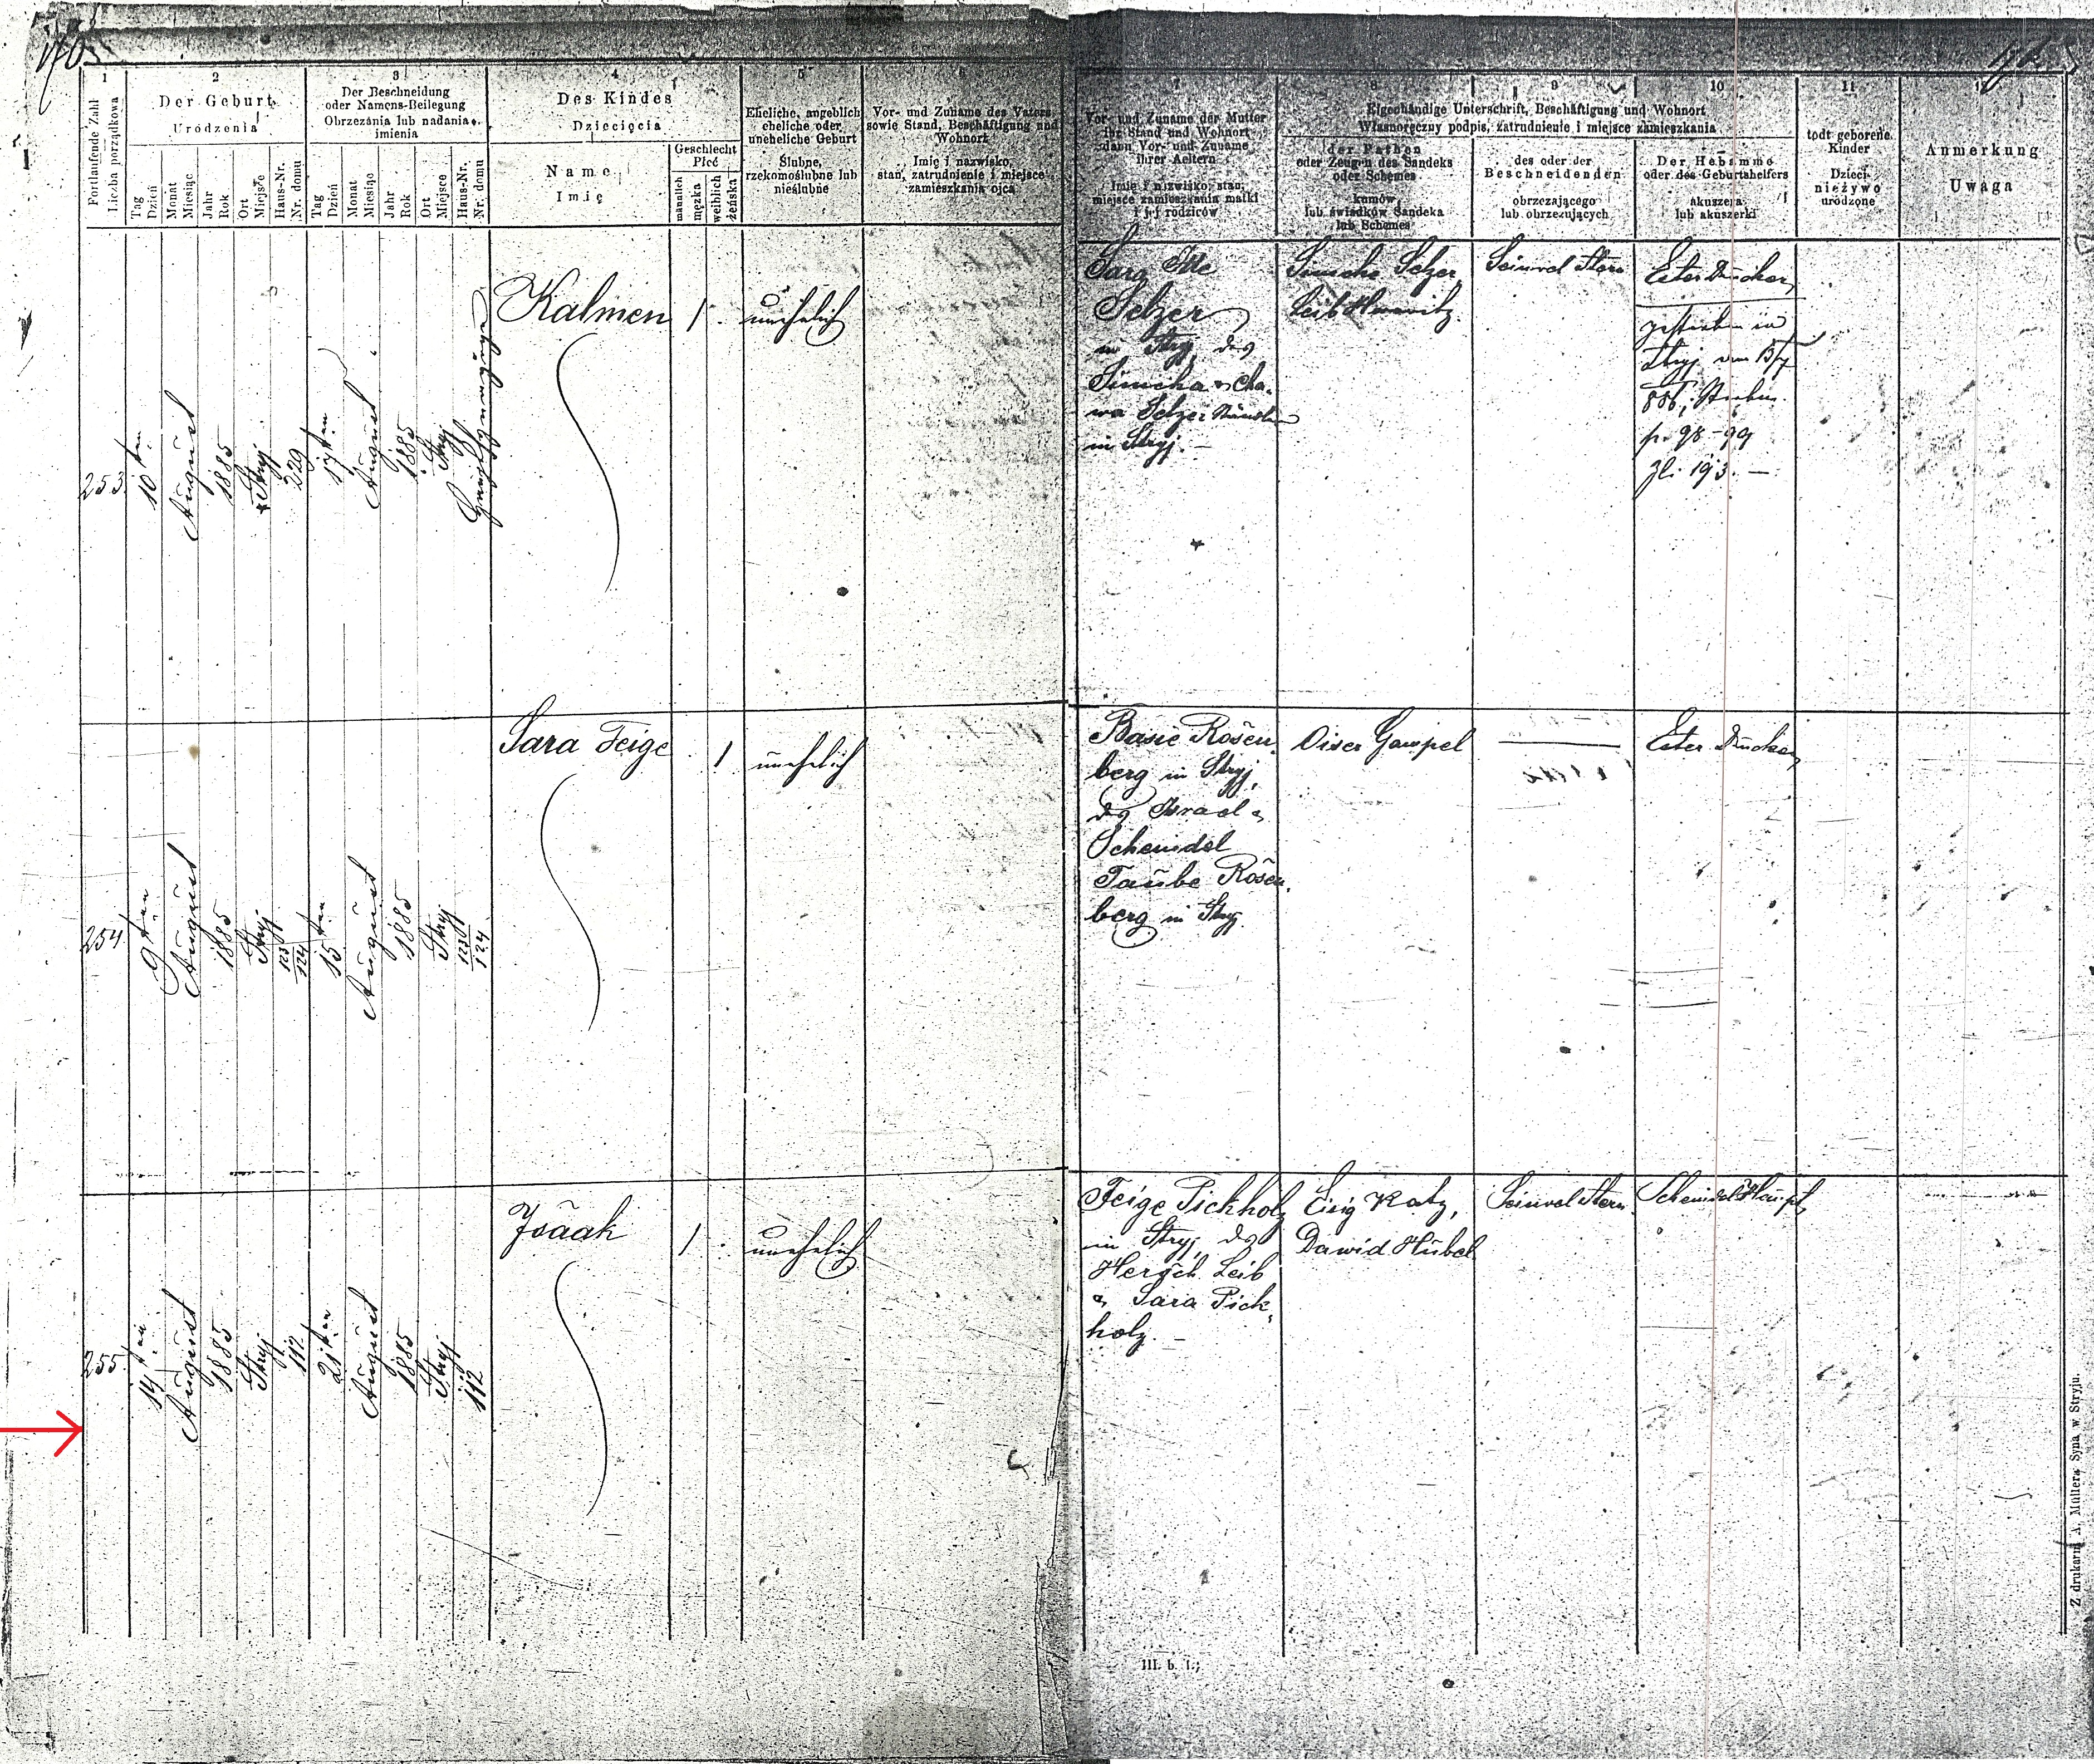 1
2
3
4
5
6
Fortlaufende Zahl
Liczba porządkowa
Der Geburt
Urodzenia
Tag
Dzień
Monat
Miesiąc
Jahr
Rok
Ort
Miejsce
Haus-Nr.
Nr. domu
Der Beschneidung
oder Namens-Beilegung
Obrzezania lub nadania
imienia
Tag
Dzień
Monat
Miesiąc
Jahr
Rok
Ort
Miejsce
Haus-Nr.
Nr. domu
Des Kindes
Dziecięcia
Name
Imię
Geschlecht
Płeć
männlich
męzka
weiblich
żeńska
Eheliche, angeblich
eheliche oder
uneheliche Geburt
Ślubne,
rzekomoślubne lub
nieślubne
Vor- und Zuname des Vaters
sowie Stand, Beschäftigung und
Wohnort
Imię i nazwisko,
stan, zatrudnienie i miejsce
zamieszkania ojca
7
8
9
10
11
Vor- und Zuname der Mutter
ihr Stand und Wohnort
dann Vor- und Zuname
ihrer Aeltern
Imię i nazwisko, stan,
miejsce zamieszkania matki
i jej rodziców
Eigenhändige Unterschrift, Beschäftigung und Wohnort
Własnoręczny podpis, zatrudnienie i miejsce zamieszkania
der Pathen
oder Zeugen des Sandeks
oder Schemes
kumów,
lub świadków Sandeka
lub Schemes
des oder der
Beschneidenden
obrzezającego
lub obrzezujących
Der Hebamme
oder des Geburtshelfers
akuszera
lub akuszerki
todt geborene
Kinder
Dzieci
nieżywo
urodzone
Anmerkung
Uwaga
253
10ten
August
1885
Stryj
229
17ten
August
1885
Stryj
Kalmen
1
unehelich
Sara Itte
Selzer
in Stryj, des
Simcha & Cha-
wa Selzer
in Stryj. —
Simche Selzer
Leib Hurwitz.
Seinwel Stern
Ester Drucker
gestorben in
Stryj
p. 98-99
Zl. 193. —
254
9ten
August
1885
Stryj
123
124
15ten
August
1885
Stryj
123
124
Sara Feige
1
unehelich
Basie Rosen-
berg in Stryj,
des Israel &
Scheindel
Taube Rosen-
berg in Stryj.
Oiser Gampel
Ester Drucker
255
14ten
August
1885
Stryj
112
21ten
August
1885
Stryj
112
Isaak
1
unehelich
Feige Pickholz
in Stryj, des
Hersch Leib
& Sara Pick-
holz. —
Eisig Katz,
Dawid Hübel
Seinwel Stern
Scheindel Haupt
III. b. 1.
Z drukarni A. Müllera Syna w Stryju.